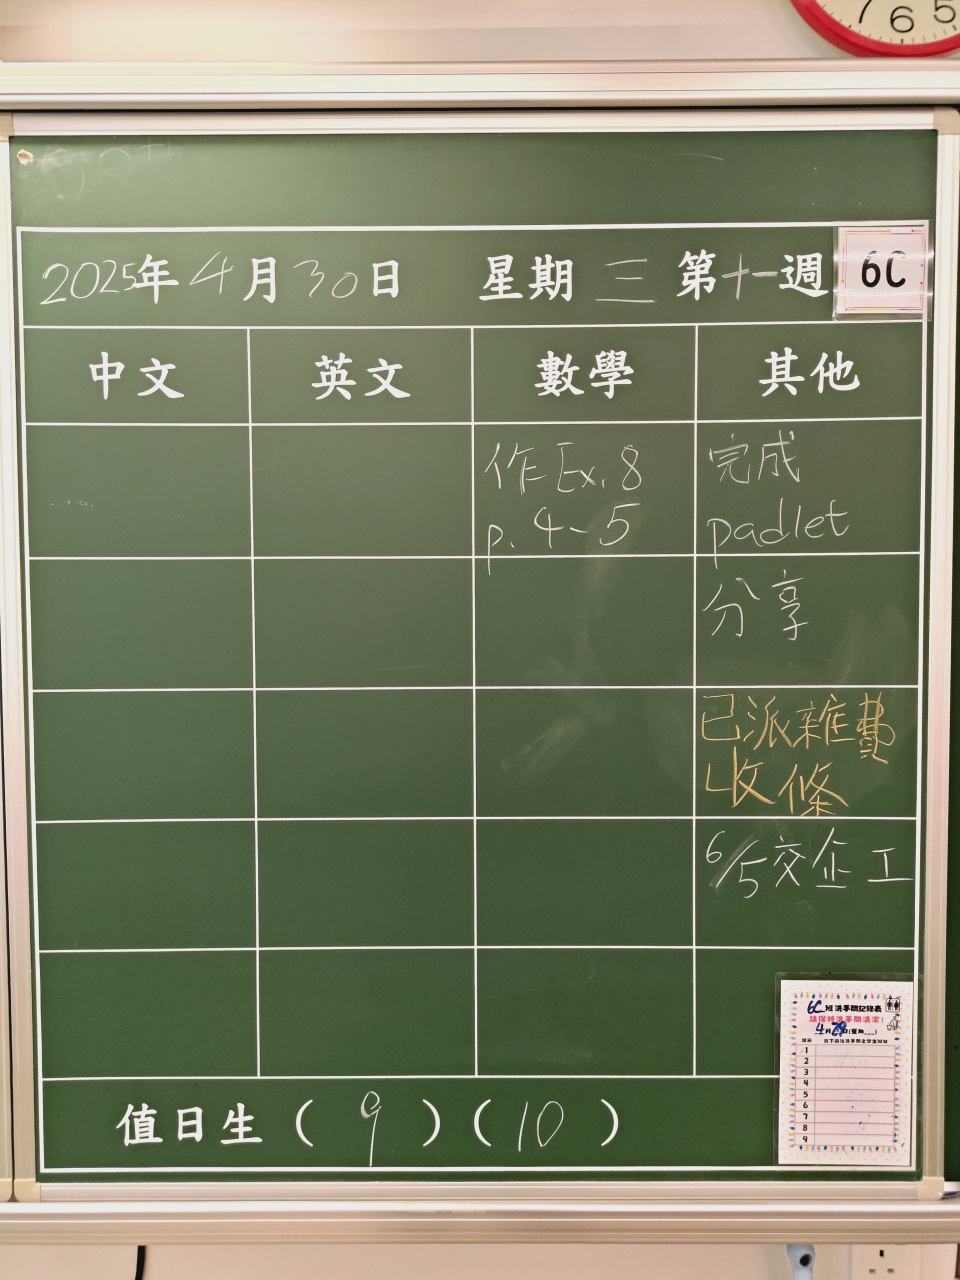 7 6 5
2025年4月30日 星期三 第十一週 6C
中文 英文 數學 其他
作 Ex. 8
p. 4-5
完成
padlet
分享
已派雜費
收條
6/5交企工
6C班洗手間記錄表
請保持洗手間清潔!
4月29日(星期__)
1
2
3
4
5
6
7
8
9
值日生(9)(10)